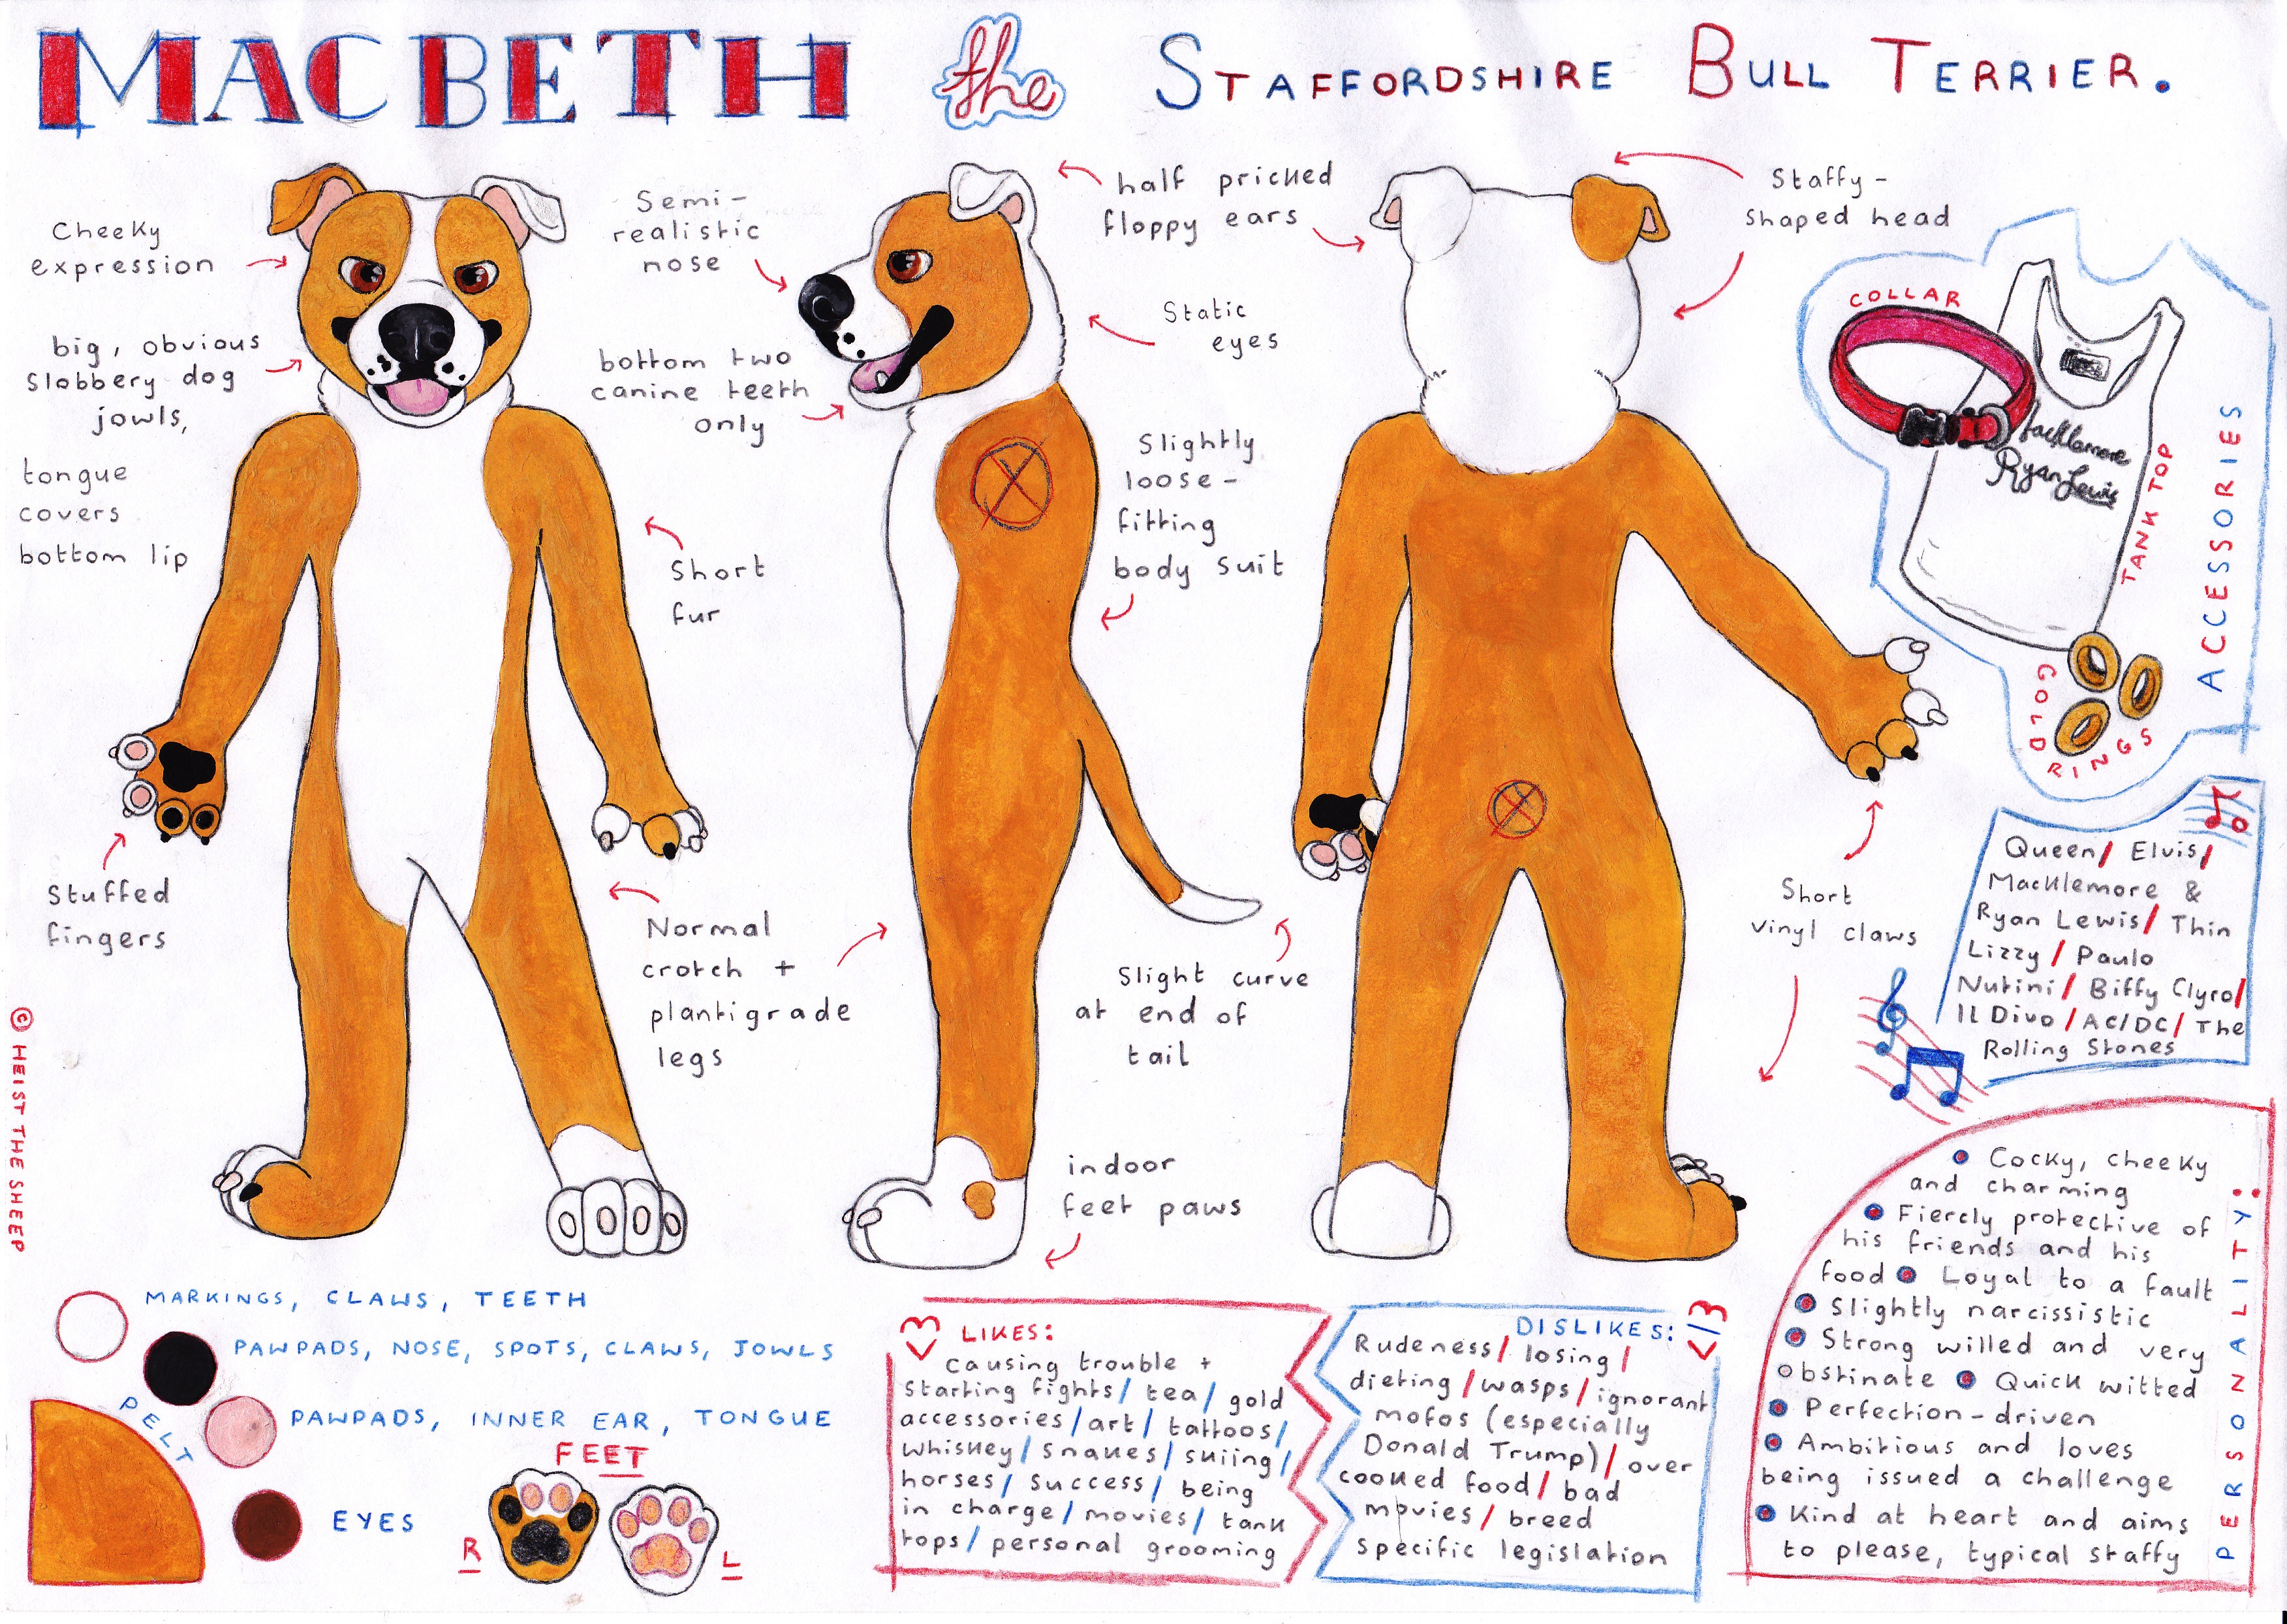 MACBETH the STAFFORDSHIRE BULL TERRIER.
Cheeky
expression
big, obvious
Slobbery dog
jowls,
tongue
covers
bottom lip
Semi-
realistic
nose
bottom two
canine teeth
only
half pricked
floppy ears
Static
eyes
Staffy-
shaped head
Slightly
loose-
fitting
body suit
Short
fur
Stuffed
fingers
Normal
crotch +
plantigrade
legs
Slight curve
at end of
tail
indoor
feet paws
Short
vinyl claws
COLLAR
Macklemore
Ryan Lewis
TANK TOP
GOLD
RINGS
ACCESSORIES
Queen/ Elvis/
Macklemore &
Ryan Lewis/ Thin
Lizzy / Paulo
Nutini/ Biffy Clyro/
Il Divo / AC/DC/ The
Rolling Stones
© HEIST THE SHEEP
MARKINGS, CLAWS, TEETH
PAWPADS, NOSE, SPOTS, CLAWS, JOWLS
PAWPADS, INNER EAR, TONGUE
PELT
EYES
FEET
R
L
LIKES:
causing trouble +
starting fights/ tea/ gold
accessories/ art/ tattoos/
whiskey/ snakes/ skiing/
horses/ success/ being
in charge/ movies/ tank
tops/ personal grooming
DISLIKES:
Rudeness/ losing/
dieting /wasps/ ignorant
mofos (especially
Donald Trump)/ over
cooked food/ bad
movies/ breed
specific legislation
• Cocky, cheeky
and charming
• Fiercly protective of
his friends and his
food • Loyal to a fault
• Slightly narcissistic
• Strong willed and very
obstinate • Quick witted
• Perfection-driven
• Ambitious and loves
being issued a challenge
• Kind at heart and aims
to please, typical staffy
PERSONALITY!